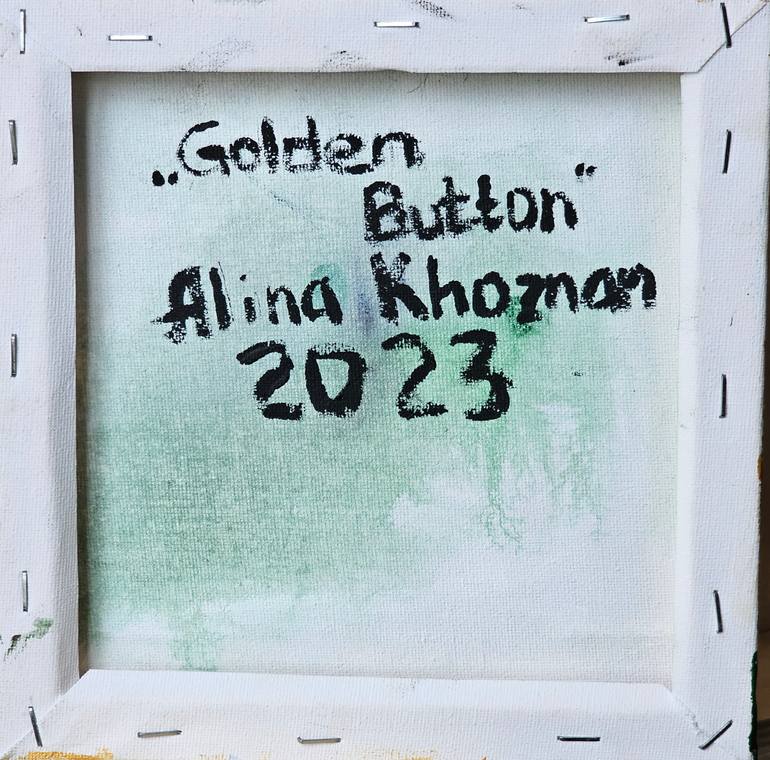 „Golden
Button“
Alina Khoznan
2023